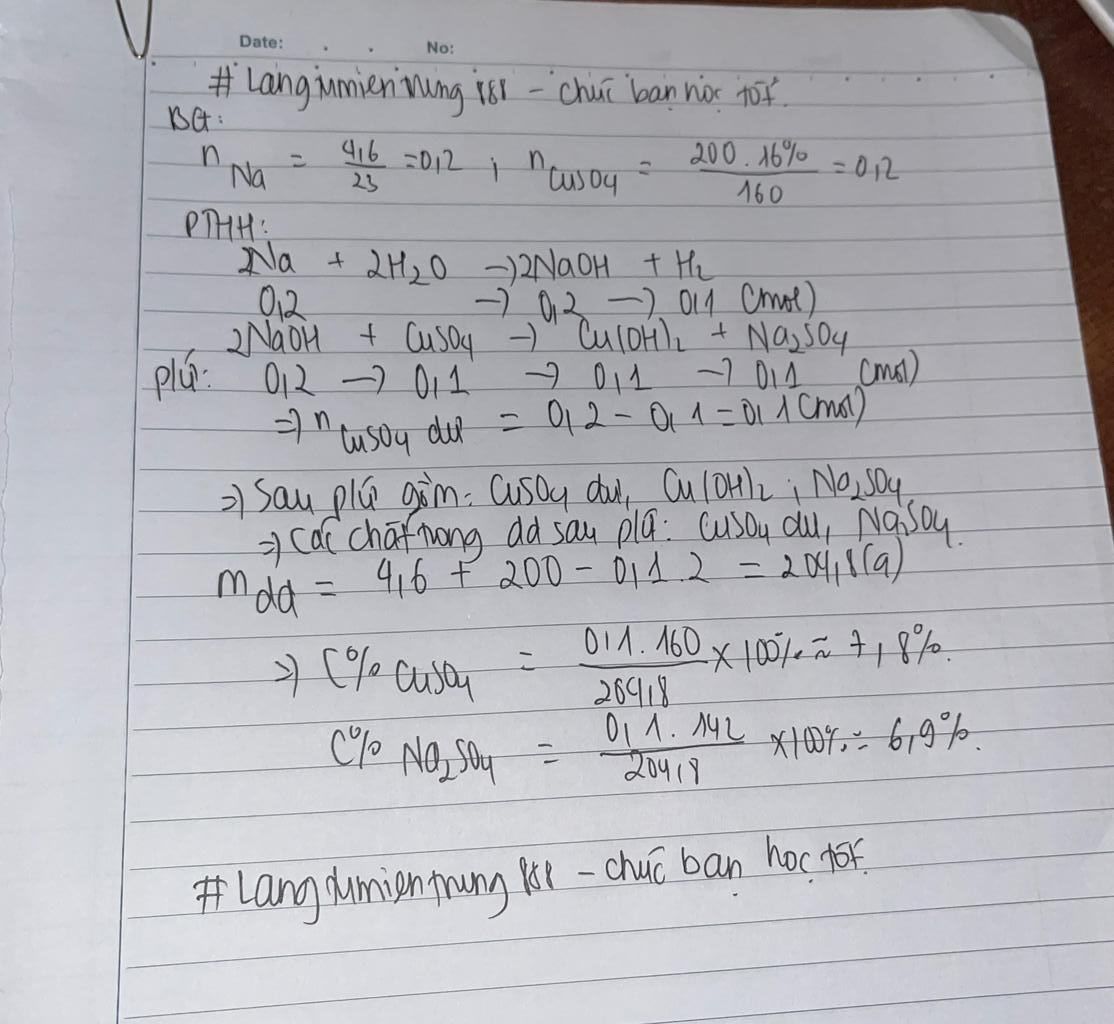 Date: . . No:
# Langdumientrung 188 - chúc bạn học tốt.
BG:
n Na = 4,6/23 = 0,2 ; n CuSO4 = 200.16%/160 = 0,2
PTHH:
2Na + 2H2O → 2NaOH + H2
0,2 → 0,2 → 0,1 (mol)
2NaOH + CuSO4 → Cu(OH)2 + Na2SO4
pứ: 0,2 → 0,1 → 0,1 → 0,1 (mol)
⇒ n CuSO4 dư = 0,2 - 0,1 = 0,1 (mol)
⇒ Sau pứ gồm: CuSO4 dư, Cu(OH)2 ; Na2SO4
⇒ Các chất trong dd sau pứ: CuSO4 dư, Na2SO4.
m dd = 4,6 + 200 - 0,1.2 = 204,8 (g)
⇒ C% CuSO4 = 0,1.160/204,8 x 100% ≈ 7,8%.
C% Na2SO4 = 0,1.142/204,8 x 100% = 6,9%.
# Langdumientrung 188 - chúc bạn học tốt.